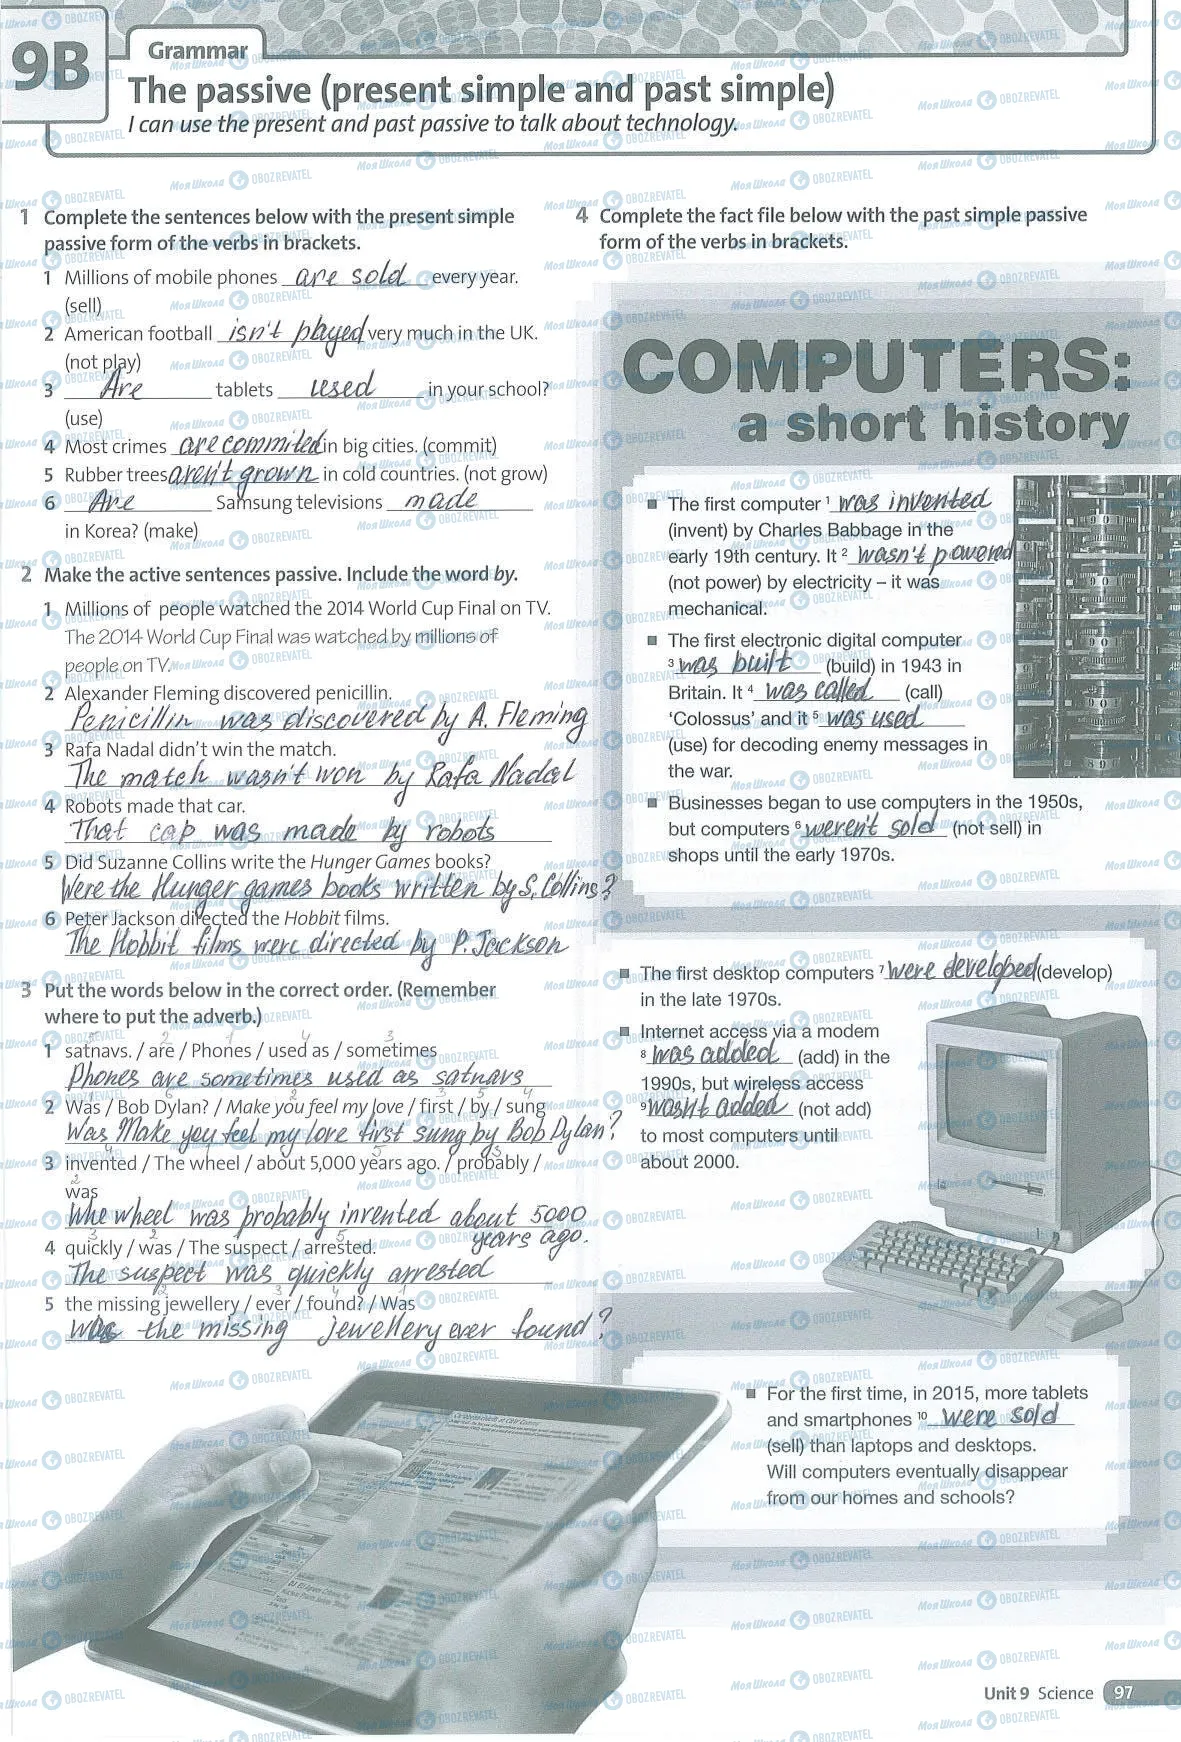 9B
Grammar
The passive (present simple and past simple)
I can use the present and past passive to talk about technology.
1 Complete the sentences below with the present simple
passive form of the verbs in brackets.
1 Millions of mobile phones are sold every year.
(sell)
2 American football isn't played very much in the UK.
(not play)
3 Are tablets used in your school?
(use)
4 Most crimes are commited in big cities. (commit)
5 Rubber trees aren't grown in cold countries. (not grow)
6 Are Samsung televisions made
in Korea? (make)
2 Make the active sentences passive. Include the word by.
1 Millions of people watched the 2014 World Cup Final on TV.
The 2014 World Cup Final was watched by millions of
people on TV.
2 Alexander Fleming discovered penicillin.
Penicillin was discovered by A. Fleming
3 Rafa Nadal didn't win the match.
The match wasn't won by Rafa Nadal
4 Robots made that car.
That car was made by robots
5 Did Suzanne Collins write the Hunger Games books?
Were the Hunger games books written by S. Collins?
6 Peter Jackson directed the Hobbit films.
The Hobbit films were directed by P. Jackson
3 Put the words below in the correct order. (Remember
where to put the adverb.)
5 2 1 4 3
1 satnavs. / are / Phones / used as / sometimes
Phones are sometimes used as satnavs
2 Was / Bob Dylan? / Make you feel my love / first / by / sung
Was Make you feel my love first sung by Bob Dylan?
3 invented / The wheel / about 5,000 years ago. / probably /
was
Whe wheel was probably invented about 5000
years ago.
4 quickly / was / The suspect / arrested.
The suspect was quickly arrested
5 the missing jewellery / ever / found? / Was
Was the missing jewellery ever found?
4 Complete the fact file below with the past simple passive
form of the verbs in brackets.
COMPUTERS:
a short history
■ The first computer 1 was invented
(invent) by Charles Babbage in the
early 19th century. It 2 wasn't powered
(not power) by electricity – it was
mechanical.
■ The first electronic digital computer
3 was built (build) in 1943 in
Britain. It 4 was called (call)
'Colossus' and it 5 was used
(use) for decoding enemy messages in
the war.
■ Businesses began to use computers in the 1950s,
but computers 6 weren't sold (not sell) in
shops until the early 1970s.
■ The first desktop computers 7 were developed (develop)
in the late 1970s.
■ Internet access via a modem
8 was added (add) in the
1990s, but wireless access
9 wasn't added (not add)
to most computers until
about 2000.
■ For the first time, in 2015, more tablets
and smartphones 10 were sold
(sell) than laptops and desktops.
Will computers eventually disappear
from our homes and schools?
Unit 9 Science 97
Моя Школа OBOZREVATEL